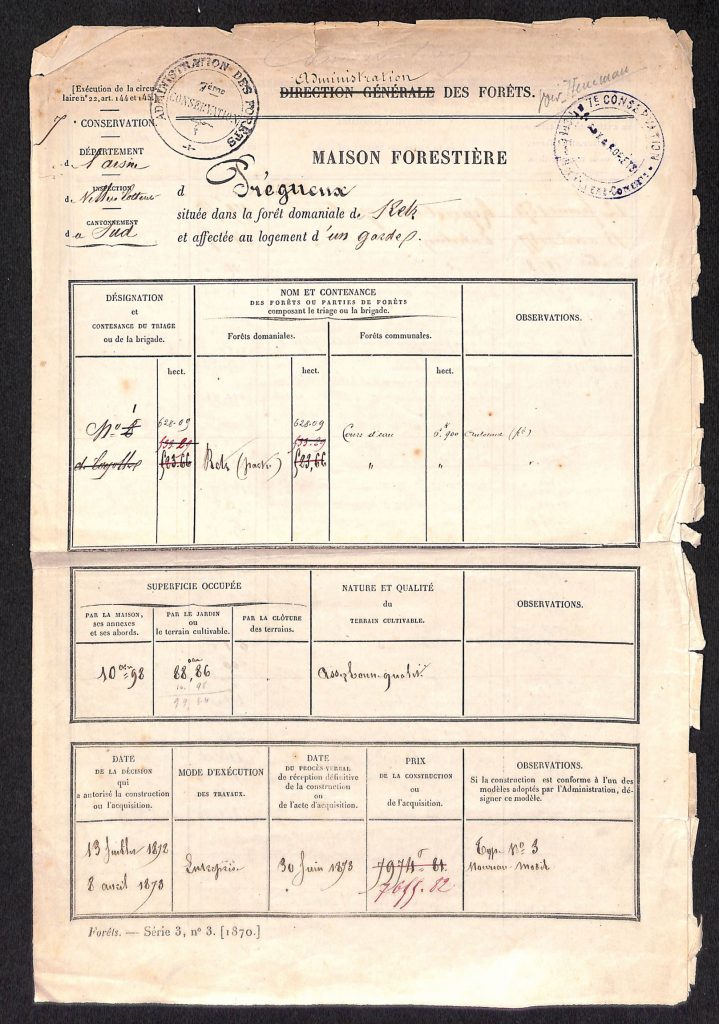 Administration
DIRECTION GÉNÉRALE DES FORÊTS.
[Exécution de la circu-
laire n° 22, art. 144 et 145]
ADMINISTRATION DES FORÊTS
7ème
CONSERVATION
7e CONSERVATION
7 CONSERVATION
DÉPARTEMENT
de l'aisne
INSPECTION
de Villers Cotterets
CANTONNEMENT
d Sud
MAISON FORESTIÈRE
d
située dans la forêt domaniale de Retz
et affectée au logement d'un garde.
DÉSIGNATION
et
CONTENANCE DU TRIAGE
ou de la brigade.
NOM ET CONTENANCE
DES FORÊTS OU PARTIES DE FORÊTS
composant le triage ou la brigade.
Forêts domaniales.
Forêts communales.
OBSERVATIONS.
hect.
hect.
hect.
1
N°
628.09
628.09
Cours d'eau
533.29
523,66
Retz (partie)
523,66
"
"
"
SUPERFICIE OCCUPÉE
PAR LA MAISON,
ses annexes
et ses abords.
PAR LE JARDIN
ou
le terrain cultivable.
PAR LA CLÔTURE
des terrains.
NATURE ET QUALITÉ
du
TERRAIN CULTIVABLE.
OBSERVATIONS.
10 98
88,86
Assez bonne qualité
DATE
DE LA DÉCISION
qui
a autorisé la construction
ou l'acquisition.
MODE D'EXÉCUTION
DES TRAVAUX.
DATE
DU PROCÈS-VERBAL
de réception définitive
de la construction
ou
de l'acte d'acquisition.
PRIX
DE LA CONSTRUCTION
ou
de l'acquisition.
OBSERVATIONS.
Si la construction est conforme à l'un des
modèles adoptés par l'Administration, dé-
signer ce modèle.
13 Juillet 1872
8 avril 1873
Entreprise
30 Juin 1873
7974f 61
7655.82
Type N° 3
Nouveau modèle
Forêts. — Série 3, n° 3. [1870.]